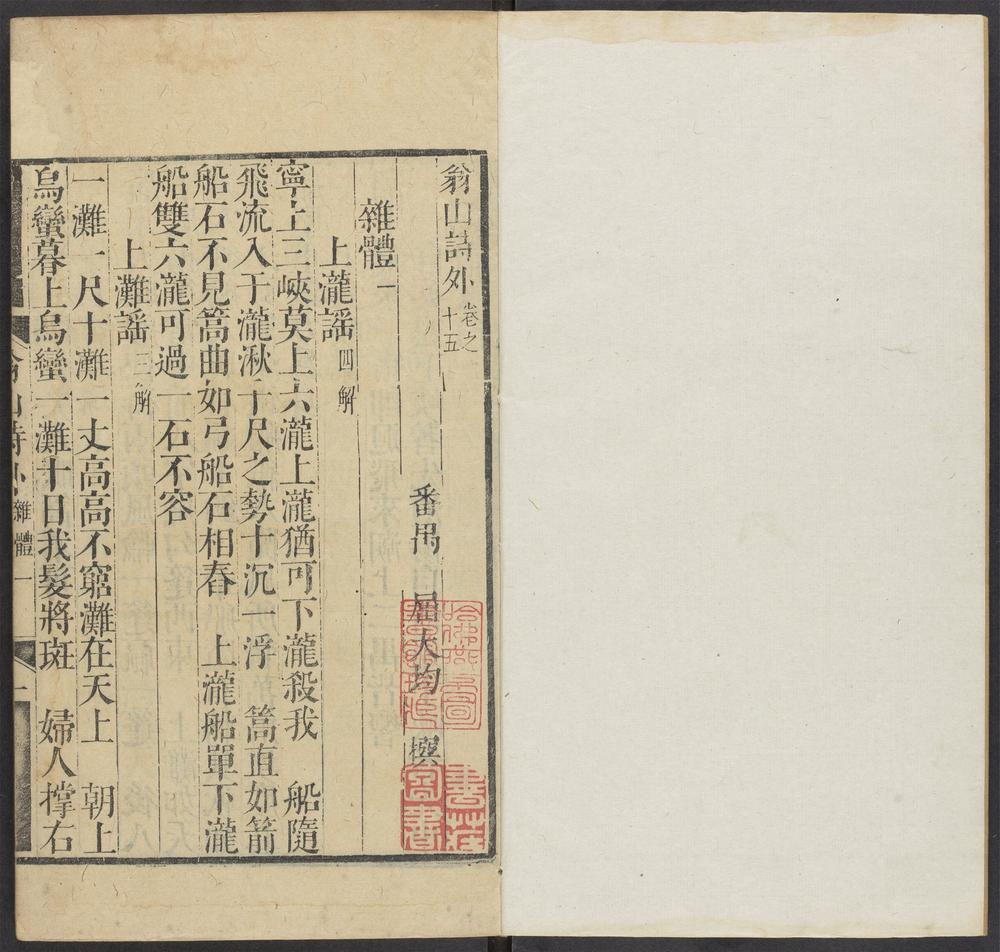 翁山詩外卷之十五
番禺 屈大均 撰
雜體一
上瀧謠四解
寧上三峽莫上六瀧上瀧猶可下瀧殺我 船隨
飛流入于瀧湫千尺之勢十沉一浮 篙直如箭
船石不見篙曲如弓船石相舂 上瀧船單下瀧
船雙六瀧可過一石不容
上灘謠三解
一灘一尺十灘一丈高高不窮灘在天上 朝上
烏蠻暮上烏蠻一灘十日我髮將斑 婦人撐右
翁山詩外 雜體一 一